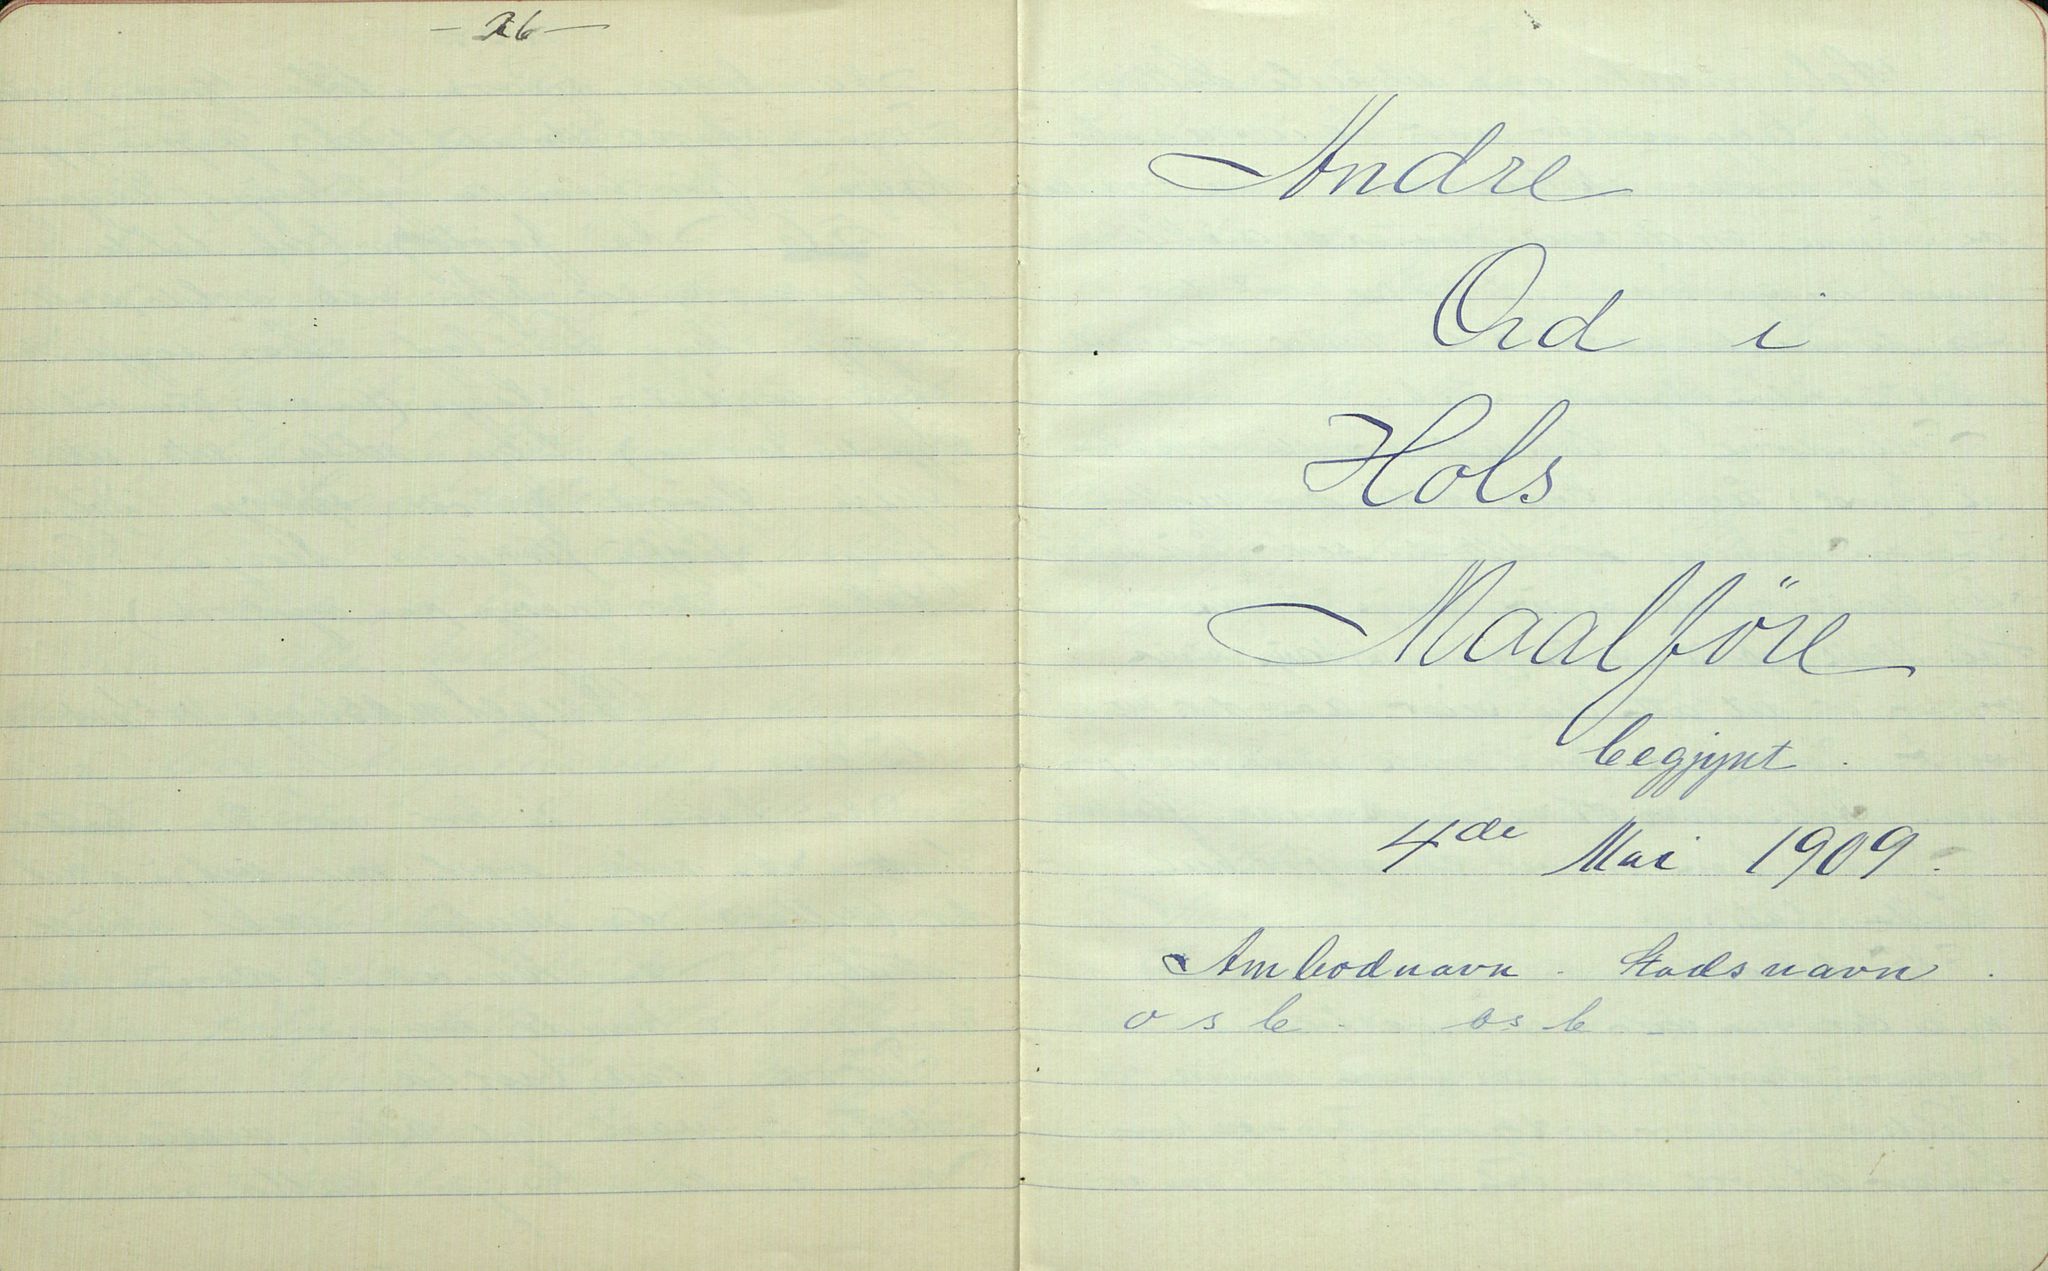 - 26 -
Andre
Ord i
Hols
Maalföre
begjynt.
4de Mai 1909.
Ambodnavn. Stadsnavn.
o s b. os b -